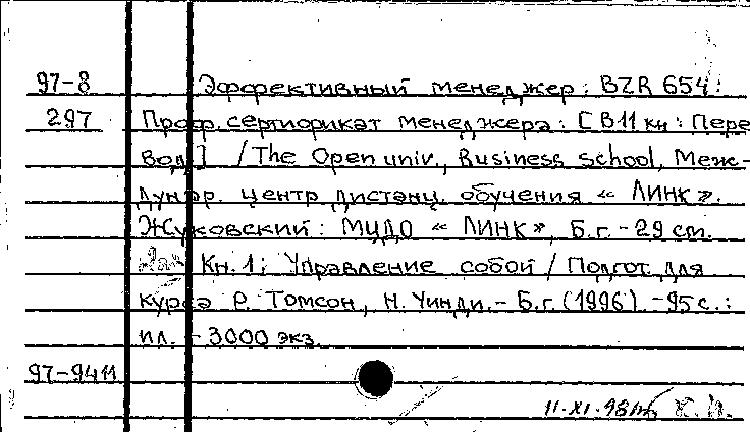 97-8 Эффективный менеджер: BZR 654:
297 Проф. сертификат менеджера: [В 11 кн: Пере
вод] / The Open univ., Business school, Меж-
дунар. центр дистанц. обучения « ЛИНК ».
Жуковский: МЦДО « ЛИНК », Б.г. - 29 см.
Кн. 1: Управление собой / Подгот. для
курса Р. Томсон, Н. Уинди. - Б.г. (1996). - 95 с.:
ил. - 3000 экз.
97-9411
11-XI-98